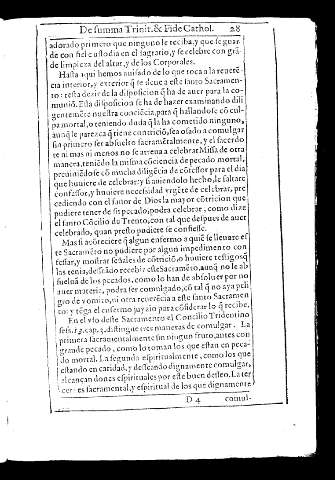 De summa Trinit. & Fide Cathol. 28
adorado primero que ninguno le reciba, y que se guar
de con fiel custodia en el sagrario, y se celebre con grã
de limpieza del altar, y de los Corporales.
Hasta aqui hemos auisado de lo que toca a la reuerē
cia interior, y exterior q̃ se deue a este santo Sacramen
to: resta dezir de la disposicion q̃ ha de auer para la co
munió. Esta disposicion se ha de hazer examinando dili
gentemēte nuestra cōciēcia, para q̃ hallandose cō cul
pa mortal, o teniendo duda q̃ la ha cometido ninguno,
aunq̃ le parezca q̃ tiene contriciō, sea osado a comulgar
sin primero ser absuelto sacramētalmente, y el sacerdo
te ni mas ni menos no se atreua a celebrar Missa de otra
manera, teniēdo la misma cōciencia de pecado mortal,
preuiniēdose cō mucha diligēcia de cōfessor para el dia
que huuiere de celebrar: y si auiendolo hecho, le faltare
confessor, y huuiere necessidad vrgēte de celebrar, pre
cediendo con el fauor de Dios la mayor cōtricion que
pudiere tener de su pecado, podra celebrar, como dize
el santo Cōcilio de Trento, con tal que despues de auer
celebrado, quan presto pudiere se confiesse.
Mas si acōteciere q̃ algun enfermo a quiē se lleuare es
te Sacramēto no pudiere por algun impedimento con
fessar, y mostrar señales de cōtriciō, o huuiere testigos q̃
las tenia, desseādo recebir este Sacramēto, aunq̃ no le ab
suelua de los pecados, como lo han de absoluer por no
auer materia, podra ser comulgado, cō tal q̃ no aya peli
gro de vomito, ni otra reuerēcia a este santo Sacramen
to y tēga el enfermo juyzio para cōsiderar lo q̃ recibe.
En el vso deste Sacramento el Concilio Tridentino
sess. 13. cap. 3. distingue tres maneras de comulgar. La
primera sacramentalmente sin ningun fruto, antes con
grande pecado, como lo toman los que estan en peca-
do mortal. La segunda espiritualmente, como los que
estando en caridad, y desseando dignamente comulgar,
alcançan dones espirituales por este buen desseo. La ter
cera es sacramental, y espiritual de los que dignamente
D 4 comul-